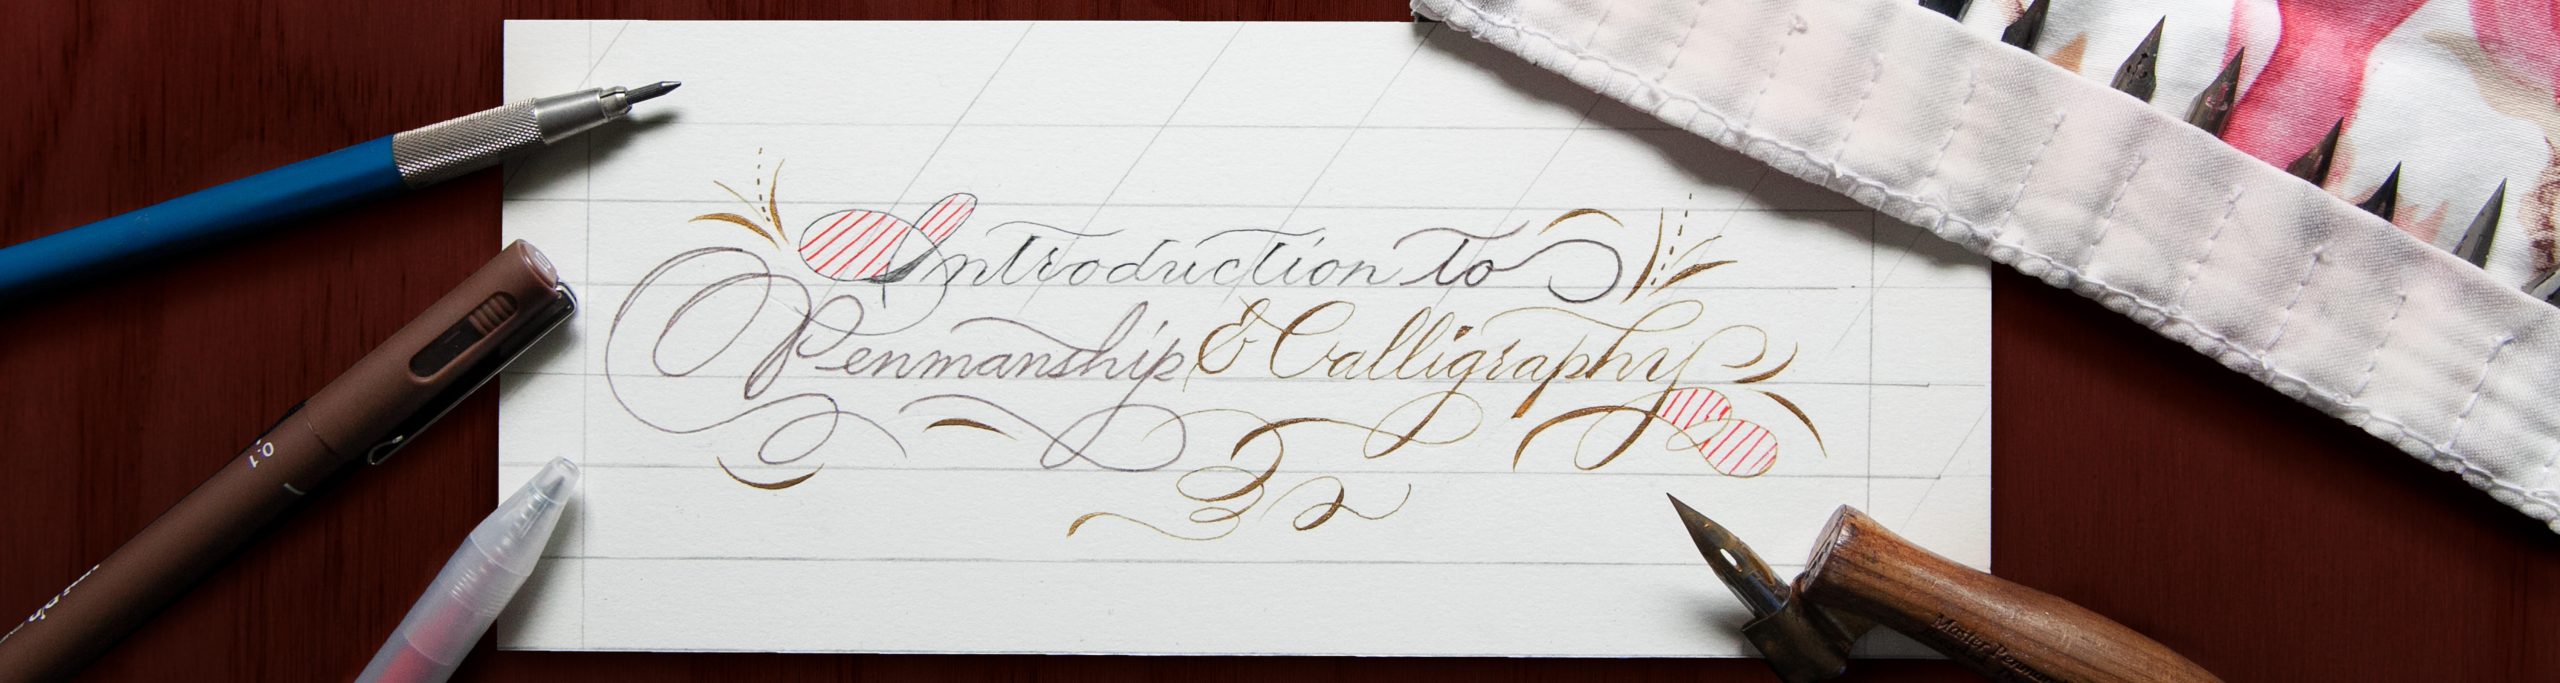 Introduction to
Penmanship & Calligraphy
0.1